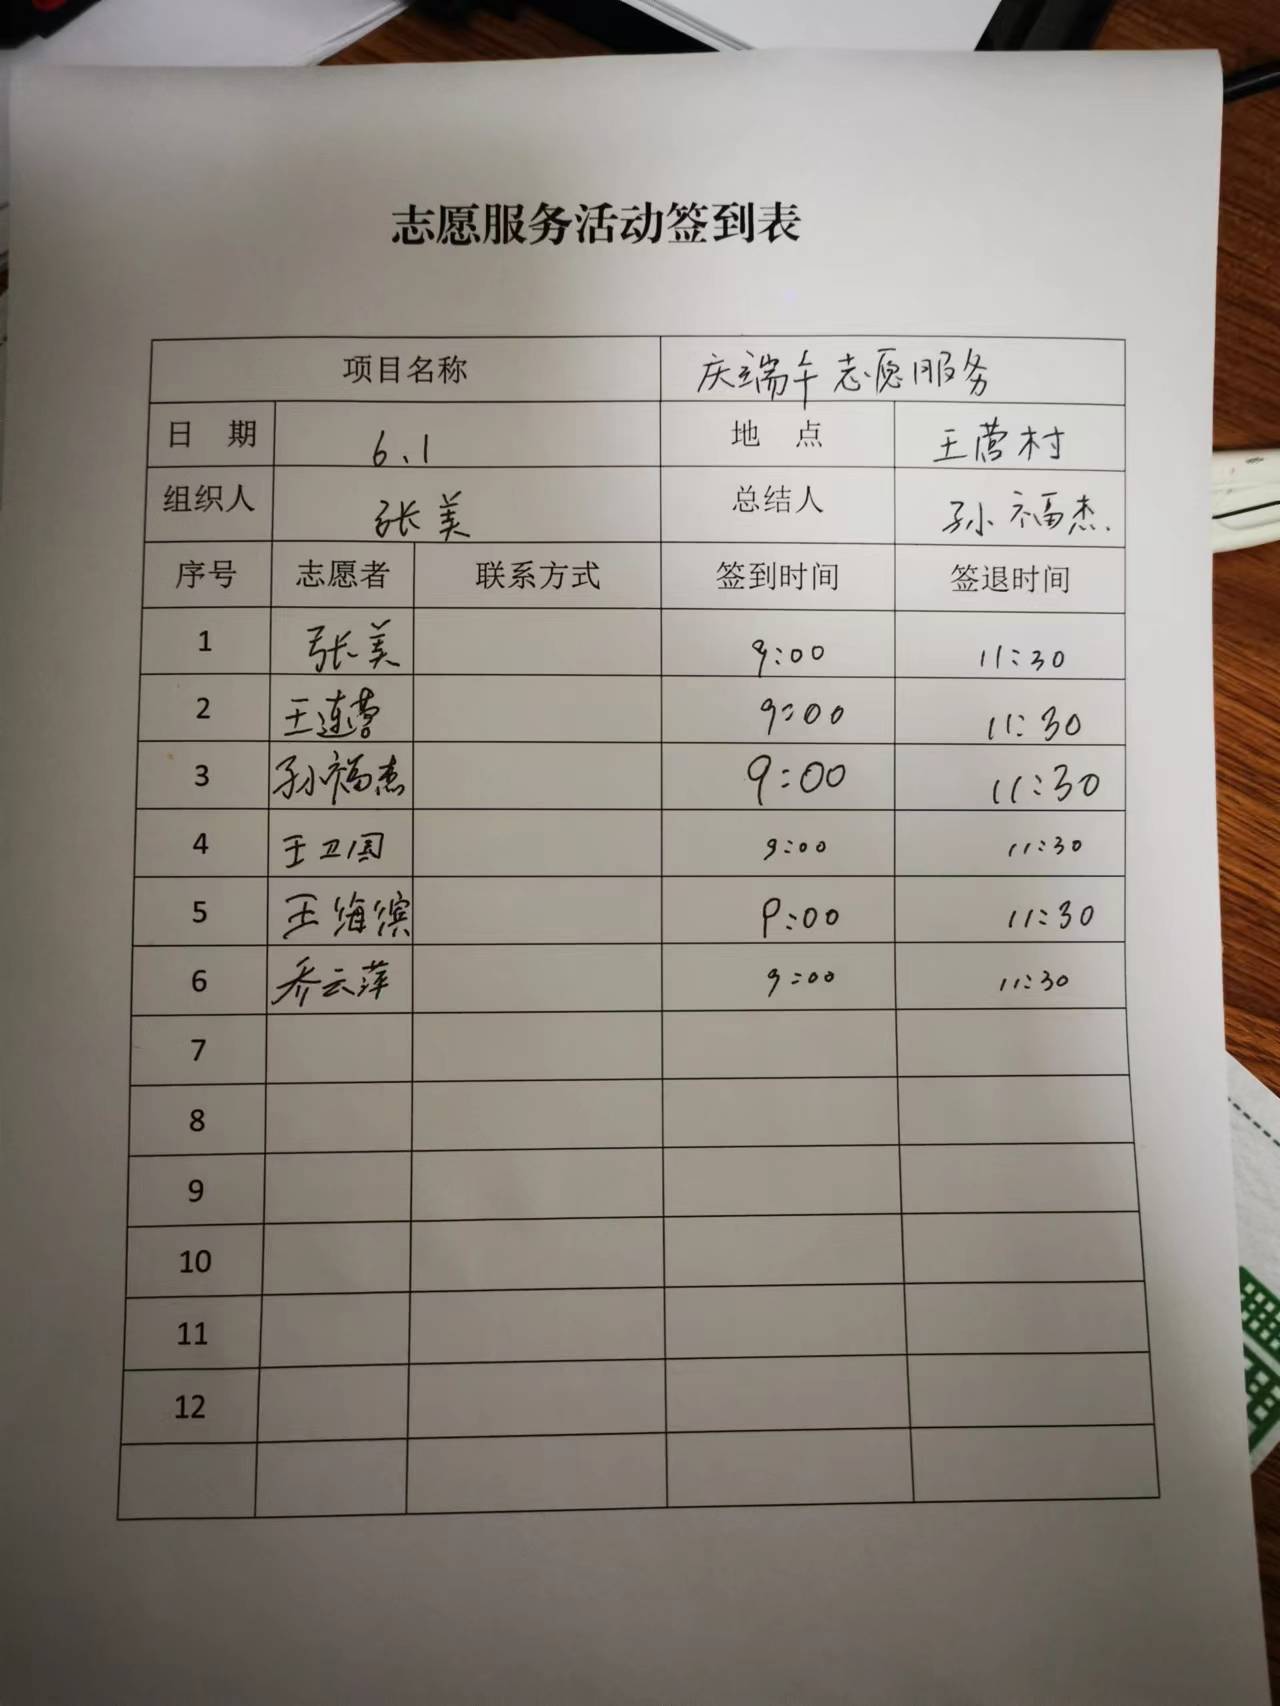 志愿服务活动签到表
项目名称 庆端午志愿服务
日 期 6、1 地 点 王营村
组织人 张美 总结人 孙福杰
序号 志愿者 联系方式 签到时间 签退时间
1 张美 9:00 11:30
2 王连营 9:00 11:30
3 孙福杰 9:00 11:30
4 王卫国 9:00 11:30
5 王海滨 9:00 11:30
6 乔云萍 9:00 11:30
7
8
9
10
11
12